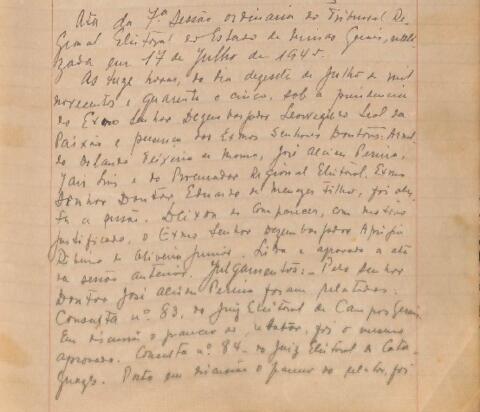 Ata da 7ª Sessão ordinaria do Tribunal Re-
gional Eleitoral do Estado de Minas Gerais, reali-
zada em 17 de Julho de 1945.
As treze horas, do dia dezesete de Julho de mil
novecentos e quarenta e cinco, sob a presidencia
do Exmo Senhor Dezembargador Leovegildo Leal da
Paixão e presença dos Exmos Senhores Doutores: Arnal-
do Orlando Teixeira de Moura, José Alcides Pereira,
Jair Lins e do Procurador Regional Eleitoral, Exmo
Senhor Doutor, Eduardo de Menezes Filho, foi aber-
ta a sessão. Deixou de comparecer, com motivo
justificado, o Exmo Senhor Dezembargador Aprigio
Ribeiro de Oliveira Junior. Lida e aprovada a ata
da sessão anterior. Julgamentos: - Pelo Senhor
Doutor José Alcides Pereira foram relatados:
Consulta nº 83, do Juiz Eleitoral de Campos Gerais.
Em discussão o parecer do relator, foi o mesmo
aprovado. Consulta nº 84 - do Juiz Eleitoral de Cata-
guazes. Posto em discussão o parecer do relator, foi